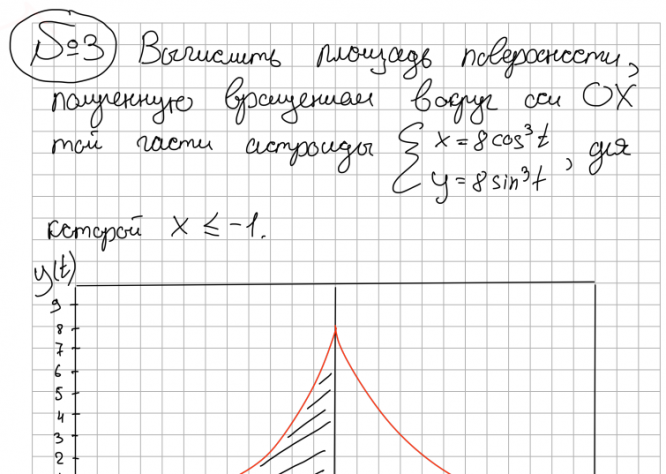 №3 Вычислить площадь поверхности,
полученную вращением вокруг оси OX
той части астроиды { x = 8 cos³t
y = 8 sin³t , для
которой x ≤ -1.
y(t)
9
8
7
6
5
4
3
2